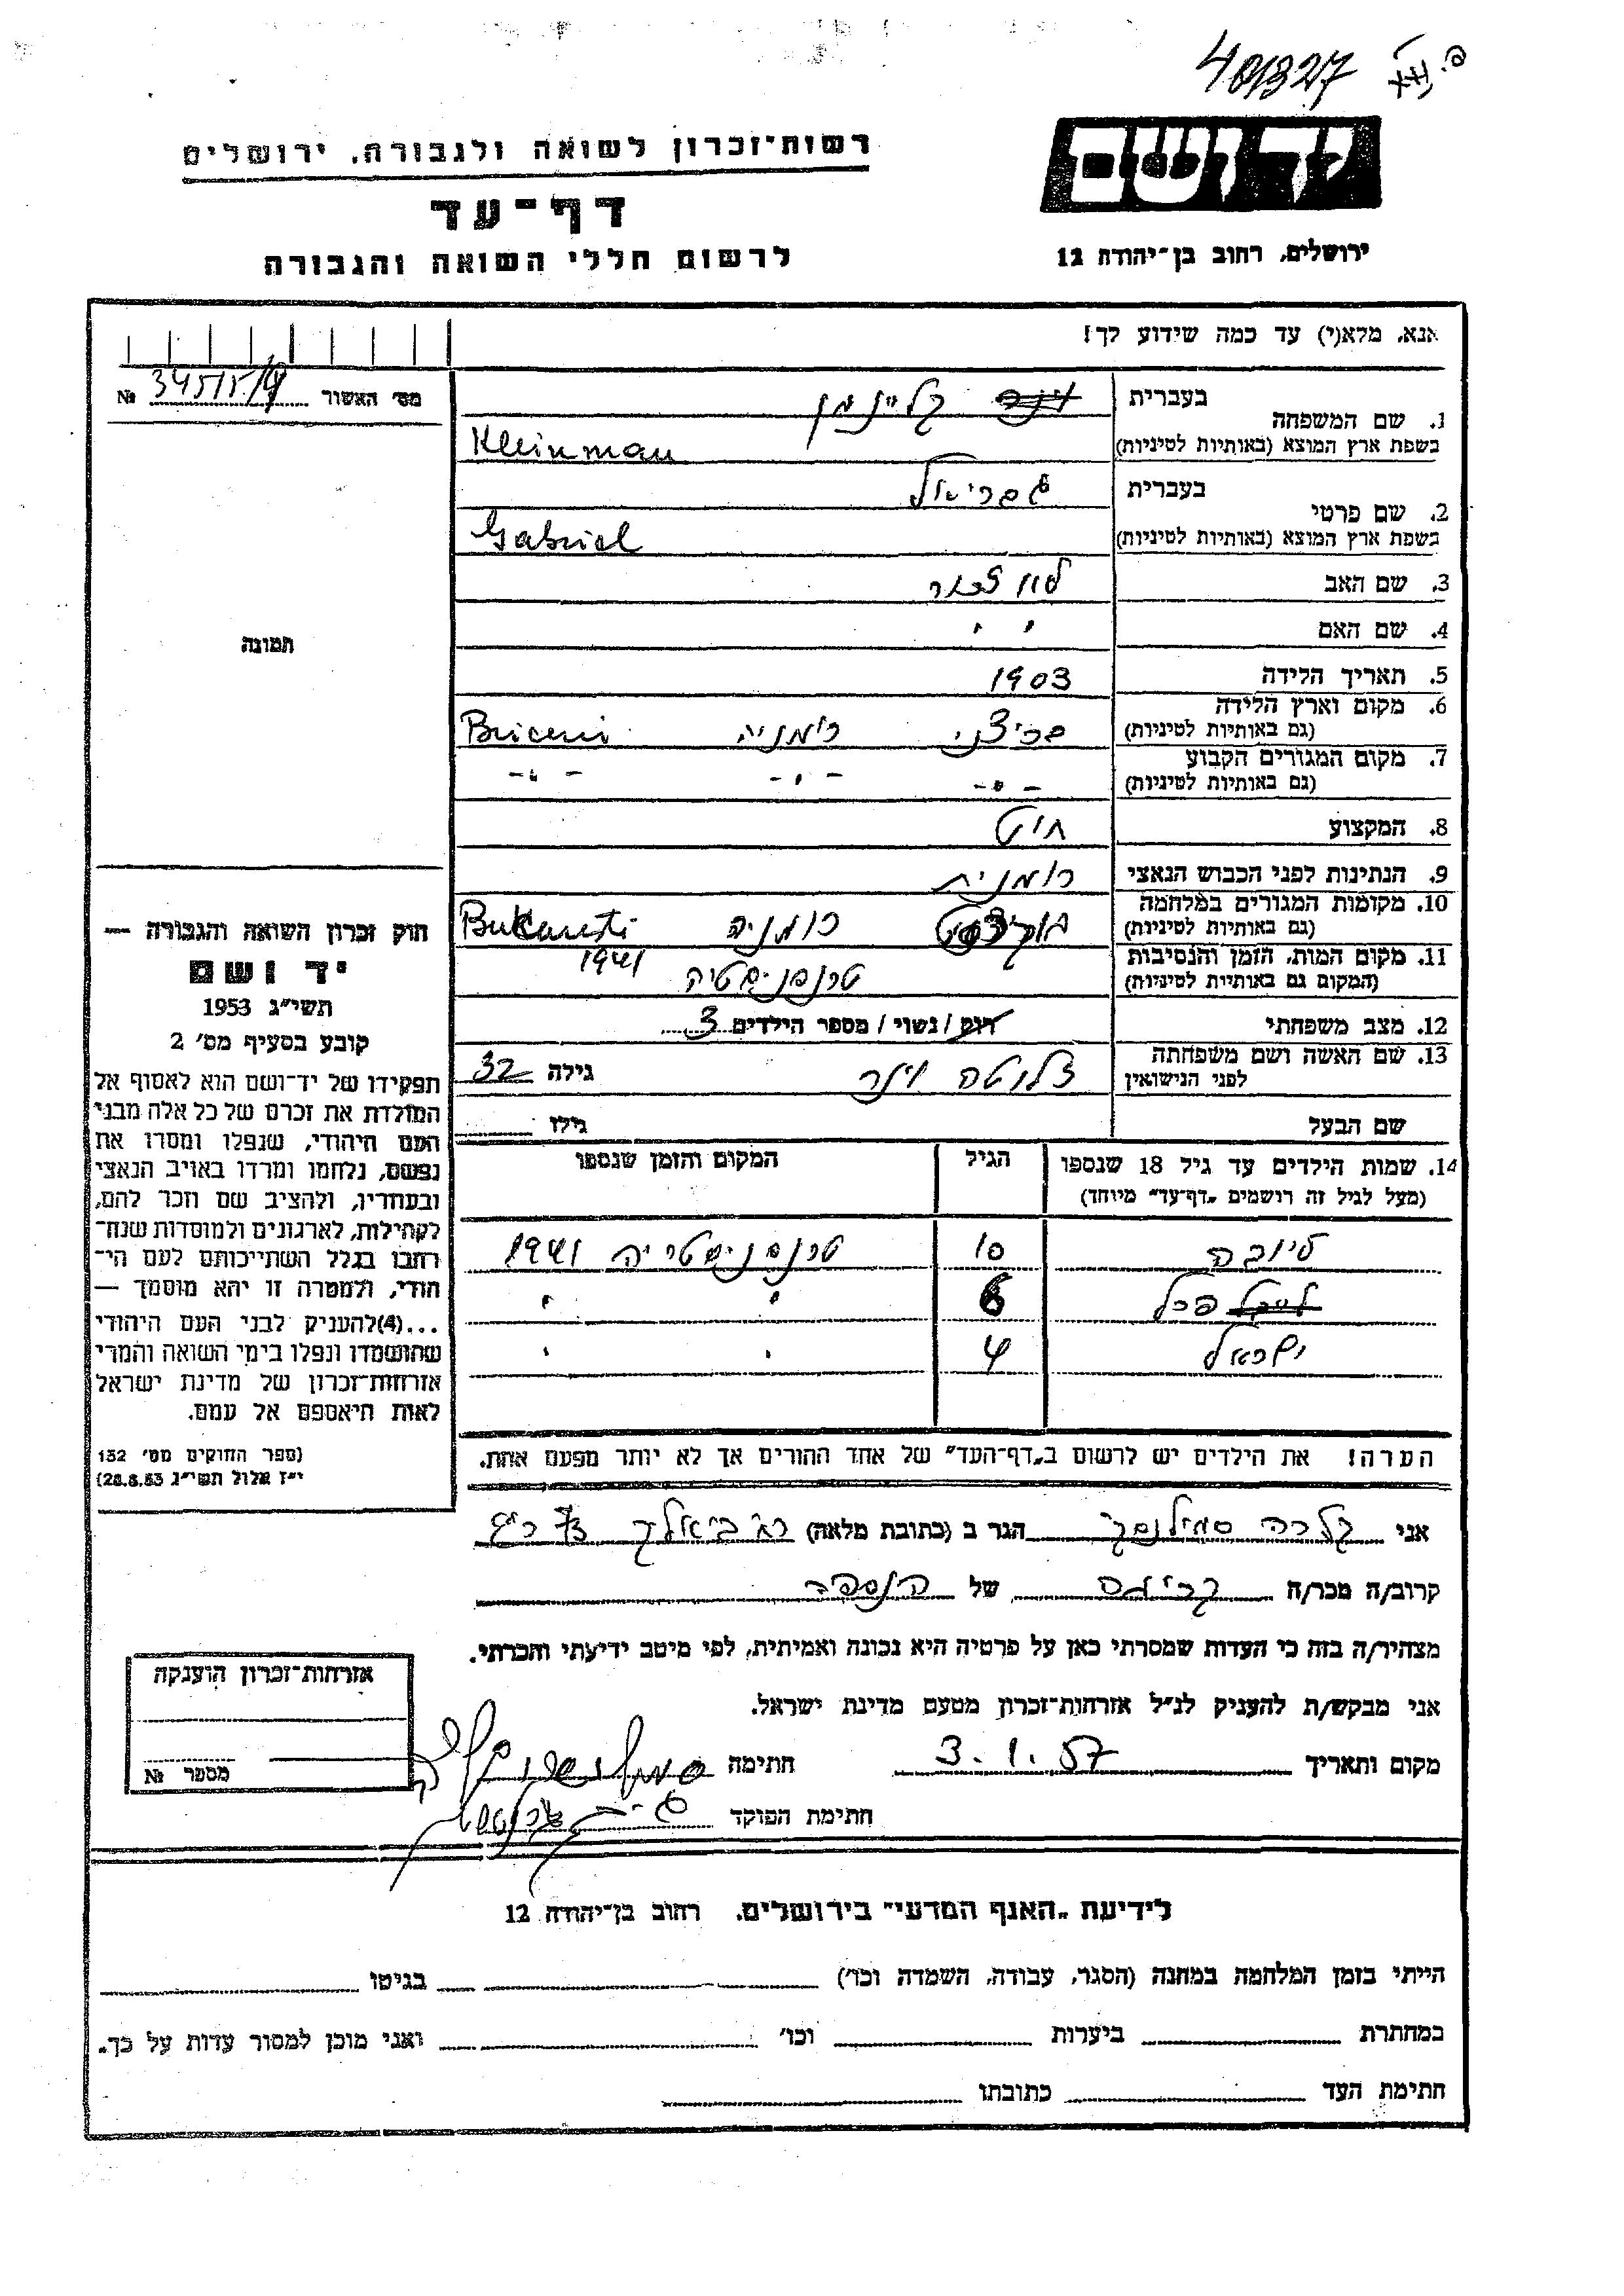 401327
יד ושם
ירושלים, רחוב בן־יהודה 12
רשות־זכרון לשואה ולגבורה, ירושלים
דף־עד
לרשום חללי השואה והגבורה
אנא, מלא(י) עד כמה שידוע לך!
מס' האשור № 345/5/4
1. שם המשפחה
בעברית קליינמן
בשפת ארץ המוצא (באותיות לטיניות) Kleinman
2. שם פרטי
בעברית גבריאל
בשפת ארץ המוצא (באותיות לטיניות) Gabriel
3. שם האב
4. שם האם
5. תאריך הלידה 1903
6. מקום וארץ הלידה בריצ'ני רומניה Briceni
(גם באותיות לטיניות)
7. מקום המגורים הקבוע -"- -"- -"-
(גם באותיות לטיניות)
8. המקצוע חיט
9. הנתינות לפני הכבוש הנאצי רומנית
10. מקומות המגורים במלחמה רומניה Bukaresti
(גם באותיות לטיניות)
11. מקום המות, הזמן והנסיבות טרנסניסטריה 1941
(המקום גם באותיות לטיניות)
12. מצב משפחתי רווק / נשוי / מספר הילדים 3
13. שם האשה ושם משפחתה זלוטה וינר גילה 32
לפני הנישואין
שם הבעל גילו
14. שמות הילדים עד גיל 18 שנספו הגיל המקום והזמן שנספו
(מעל לגיל זה רושמים „דף־עד" מיוחד)
ליובה 10 טרנסניסטריה 1941
רחל 6 " "
ישראל 4 " "
הערה! את הילדים יש לרשום ב„דף־העד" של אחד ההורים אך לא יותר מפעם אחת.
תמונה
חוק זכרון השואה והגבורה —
יד ושם
תשי"ג 1953
קובע בסעיף מס' 2
תפקידו של יד־ושם הוא לאסוף אל
המולדת את זכרם של כל אלה מבני
העם היהודי, שנפלו ומסרו את
נפשם, נלחמו ומרדו באויב הנאצי
ובעוזריו, ולהציב שם וזכר להם,
לקהילות, לארגונים ולמוסדות שנח־
רבו בגלל השתייכותם לעם הי־
הודי, ולמטרה זו יהא מוסמך —
...(4)להעניק לבני העם היהודי
שהושמדו ונפלו בימי השואה והמרי
אזרחות־זכרון של מדינת ישראל
לאות היאספם אל עמם.
(ספר החוקים מס' 132
י"ז אלול תשי"ג 28.8.53)
אני קלרה סמולנסקי הגר ב (כתובת מלאה)
קרוב/ה מכר/ה קרובה של הנספה
מצהיר/ה בזה כי העדות שמסרתי כאן על פרטיה היא נכונה ואמיתית, לפי מיטב ידיעתי והכרתי.
אני מבקש/ת להעניק לנ"ל אזרחות־זכרון מטעם מדינת ישראל.
מקום ותאריך 3.1.57 חתימה
חתימת הפוקד
אזרחות־זכרון הוענקה
מספר №
לידיעת „האגף המדעי" בירושלים, רחוב בן־יהודה 12
הייתי בזמן המלחמה במחנה (הסגר, עבודה, השמדה וכו') בגיטו
במחתרת ביערות וכו' ואני מוכן למסור עדות על כך.
חתימת העד כתובתו